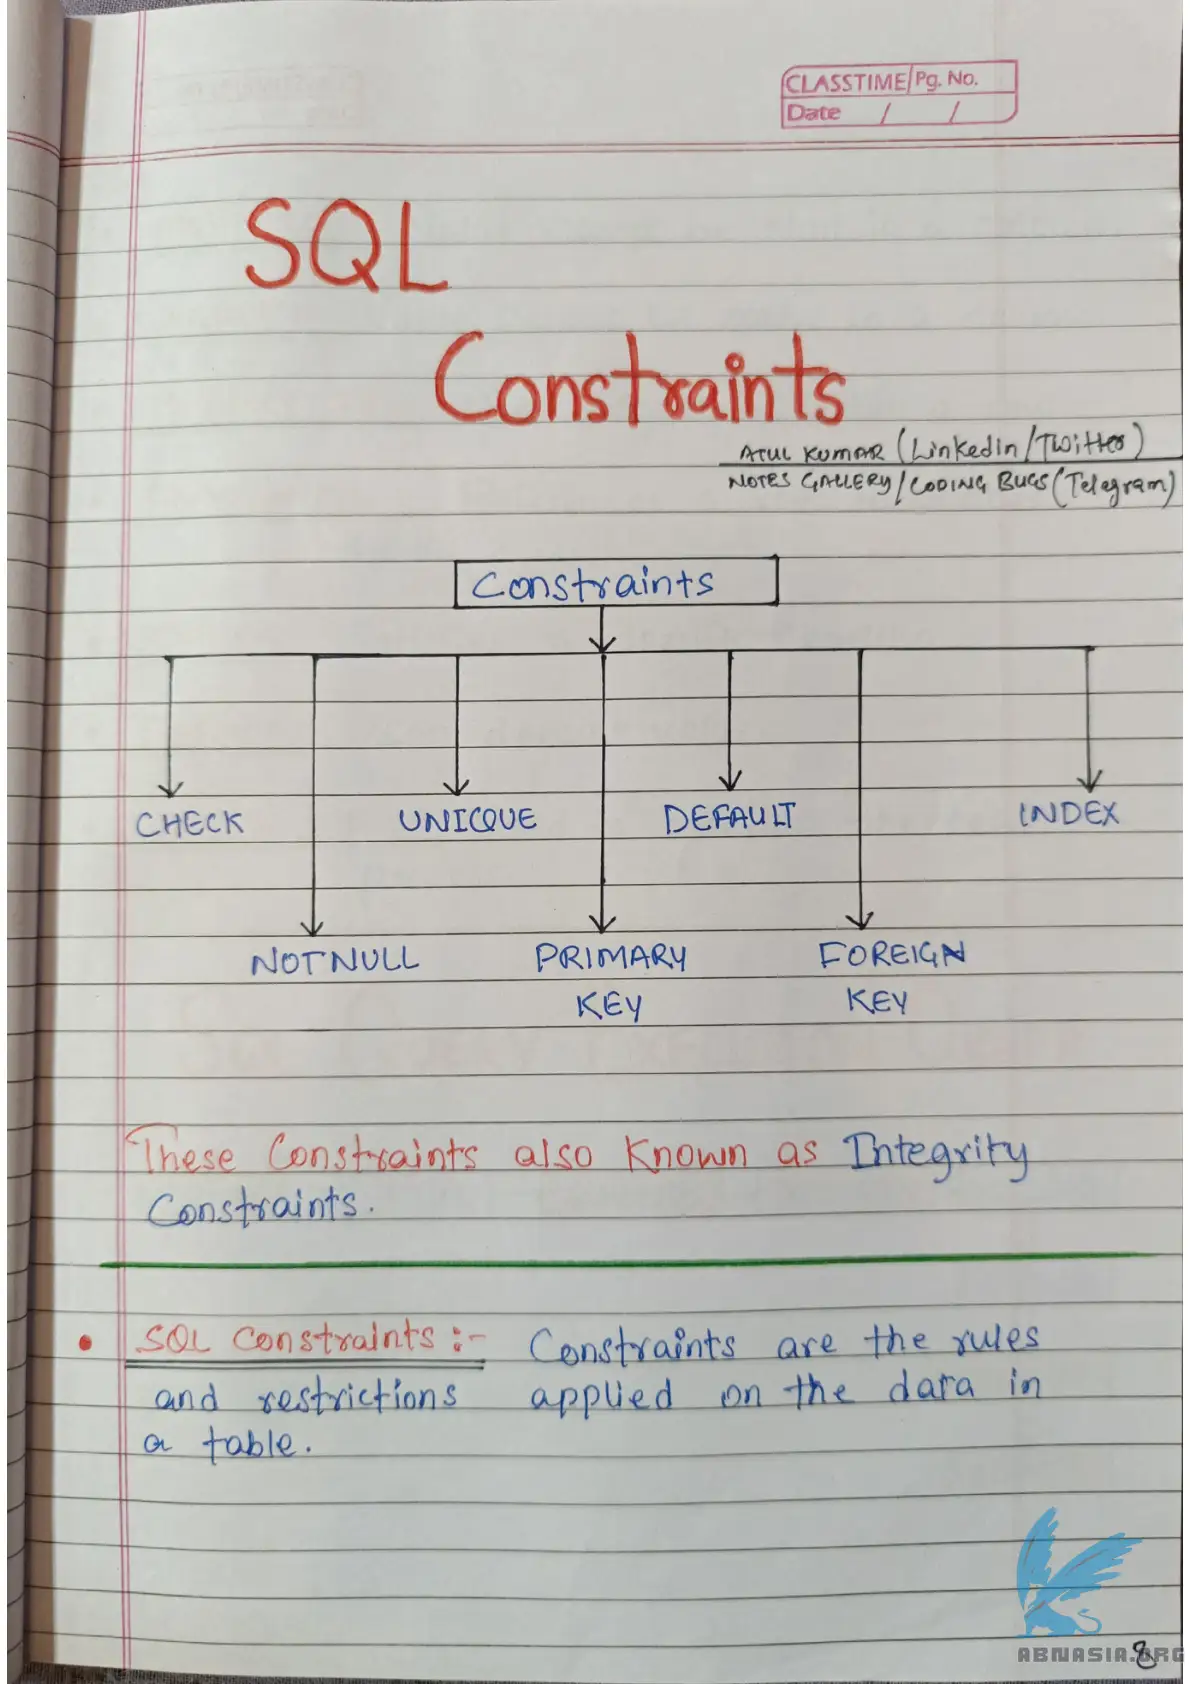 CLASSTIME Pg. No.
Date / /
SQL
Constraints
ATUL KUMAR (LinkedIn/Twitter)
NOTES GALLERY/CODING BUGS (Telegram)
Constraints
CHECK UNIQUE DEFAULT INDEX
NOTNULL PRIMARY KEY FOREIGN KEY
These Constraints also Known as Integrity
Constraints.
• SQL Constraints :- Constraints are the rules
and restrictions applied on the data in
a table.
ABNASIA.ORG
8